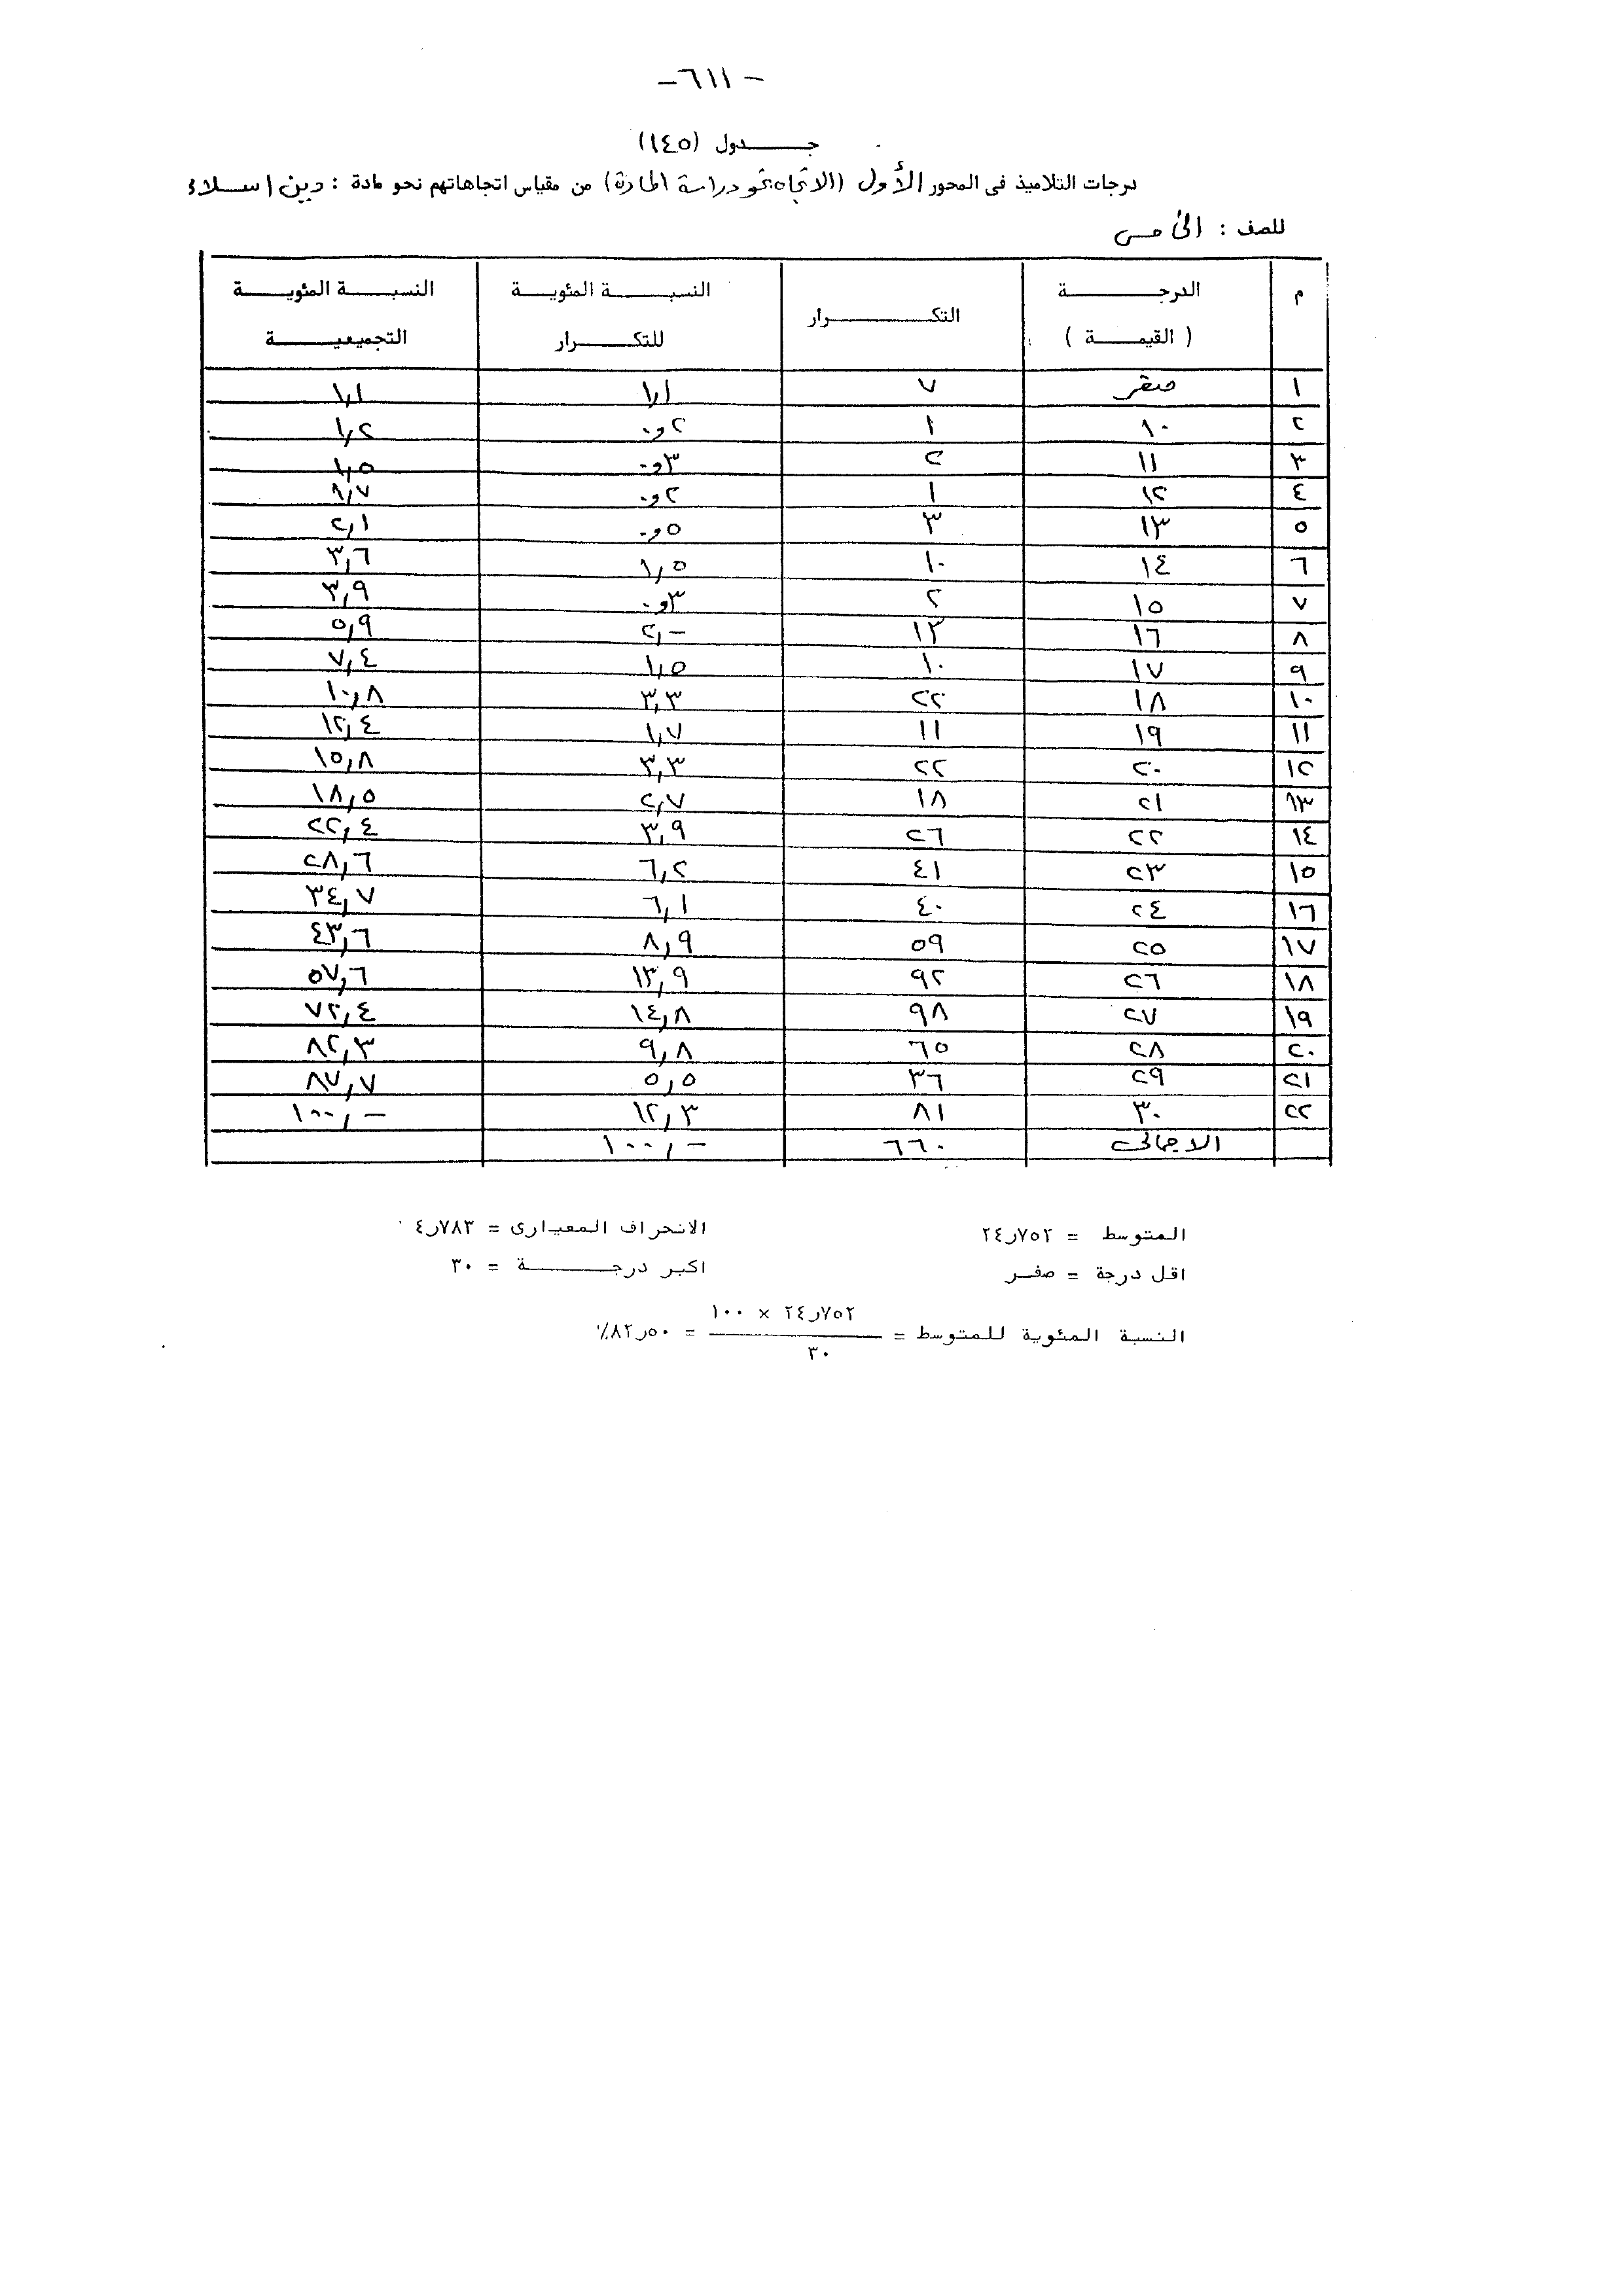 - ٦١١ -
جدول (١٤٥)
درجات التلاميذ فى المحور الأول (الاتجاه نحو دراسة المادة) من مقياس اتجاهاتهم نحو مادة : دين اسلامى
للصف : الخامس
م الدرجة (القيمة) التكرار النسبة المئوية للتكرار النسبة المئوية التجميعية
١ صفر ٧ ١,١ ١,١
٢ ١٠ ١ ٢و٠ ١,٢
٣ ١١ ٢ ٣و٠ ١,٥
٤ ١٢ ١ ٢و٠ ١,٧
٥ ١٣ ٣ ٥و٠ ٢,١
٦ ١٤ ١٠ ١,٥ ٣,٦
٧ ١٥ ٢ ٣و٠ ٣,٩
٨ ١٦ ١٣ ٢,- ٥,٩
٩ ١٧ ١٠ ١,٥ ٧,٤
١٠ ١٨ ٢٢ ٣,٣ ١٠,٨
١١ ١٩ ١١ ١,٧ ١٢,٤
١٢ ٢٠ ٢٢ ٣,٣ ١٥,٨
١٣ ٢١ ١٨ ٢,٧ ١٨,٥
١٤ ٢٢ ٢٦ ٣,٩ ٢٢,٤
١٥ ٢٣ ٤١ ٦,٢ ٢٨,٦
١٦ ٢٤ ٤٠ ٦,١ ٣٤,٧
١٧ ٢٥ ٥٩ ٨,٩ ٤٣,٦
١٨ ٢٦ ٩٢ ١٣,٩ ٥٧,٦
١٩ ٢٧ ٩٨ ١٤,٨ ٧٢,٤
٢٠ ٢٨ ٦٥ ٩,٨ ٨٢,٣
٢١ ٢٩ ٣٦ ٥,٥ ٨٧,٧
٢٢ ٣٠ ٨١ ١٢,٣ ١٠٠,-
الاجمالى ٦٦٠ ١٠٠,-
المتوسط = ٧٥٢ر٢٤ الانحراف المعيارى = ٧٨٣ر٤
اقل درجة = صفر اكبر درجة = ٣٠
النسبة المئوية للمتوسط = ٧٥٢ر٢٤ × ١٠٠ / ٣٠ = ٥٠ر٨٢٪